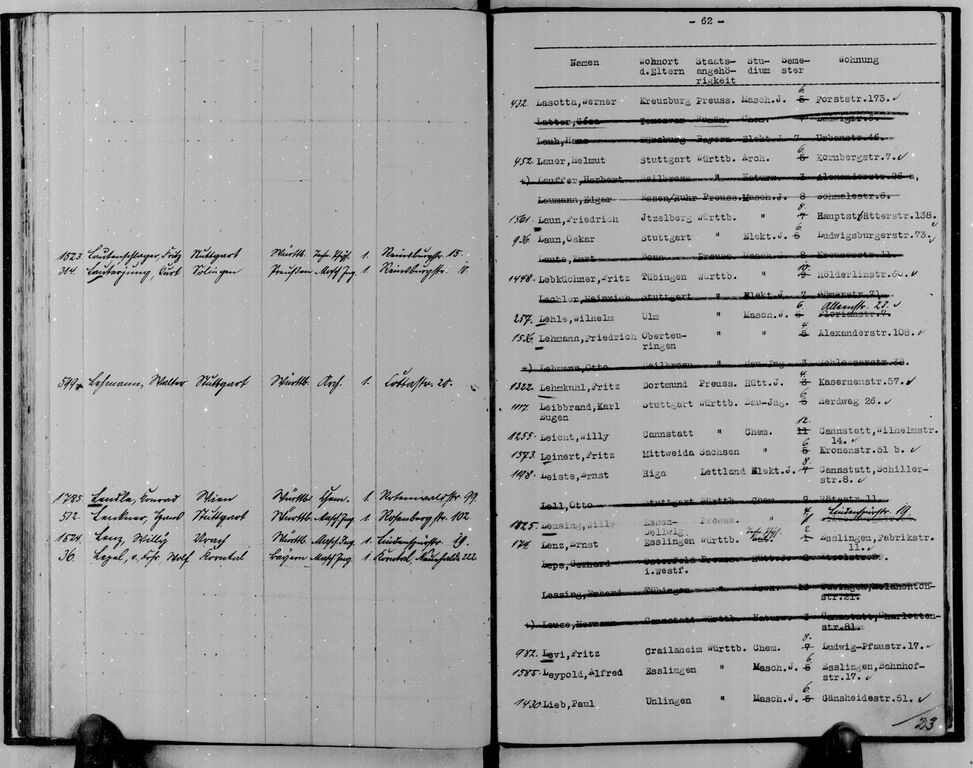 1523. Lautenschlager, Fritz Stuttgart Württb. 1. Reinsburgstr. 15.
304. Lauterjung, Curt Solingen Preußen Masch Ing 1. Reinsburgstr.
549. Lehmann, Walter Stuttgart Württb. Arch. 1. Cottastr. 20.
1785. Lendle, Konrad Wien Württb. Chem. 1 Rotenwaldstr 99
512. Lenkner, Stuttgart Württb. Masch Ing 1 Rosenbergstr. 102
1524. Lenz, Willy Urach Württb. Masch Ing 1. Lindenspürstr. 29.
36. Wolf Korntal Bayern Masch Ing 1 Korntal, 222
- 62 -
Namen Wohnort d.Eltern Staats-angehö-rigkeit Stu-dium Seme-ster Wohnung
432. Lasotta,Werner Kreuzburg Preuss. Masch.J. 6. 5 Forststr.173. ✓
Latter,Géza Temesvar Rumän. Chem. 7 Ludwigstr.8.
Laub,Hans Würzburg Bayern Elekt.J. 7 Urbanstr.46.
452. Lauer,Helmut Stuttgart Württb. Arch. 6. 5 Kornbergstr.7. ✓
+) Lauffer,Herbert Heilbronn " Naturw. 3
Laumann,Edgar Essen/Ruhr Preuss. Masch.J. 8
1561. Laun,Friedrich Jtzelberg Württb. " 8. 7 Hauptstätterstr.138. ✓
936. Laun,Oskar Stuttgart " Elekt.J. 6. 5 Ludwigsburgerstr.73. ✓
Lautz,Kurt Bonn Preuss. Masch.J. 8
1448. Lebküchner,Fritz Tübingen Württb. " 10. 9 Hölderlinstr.60. ✓
Lechler,Heinrich Stuttgart " Elekt.J. 7 Römerstr.71.
257. Lehle,Wilhelm Ulm " Masch.J. 6. 5 Florianstr.7. Alleenstr. 23. ✓
1536. Lehmann,Friedrich Oberteu- " " 4. 5 Alexanderstr.108. ✓
ringen
+) Lehmann,Otto Heilbronn " Bau-Ing. 3
1322. Lehmkuhl,Fritz Dortmund Preuss. Hütt.J. 4. 3 Kasernenstr.57. ✓
1117. Leibbrand,Karl Stuttgart Württb. Bau-Jng. 6. 5 Herdweg 26. ✓
Eugen
1255. Leicht,Willy Cannstatt " Chem. 12. 11 Cannstatt,Wilhelmstr.
14. ✓
1573. Leinert,Fritz Mittweida Sachsen " 6 5 Kronenstr.51 b. ✓
1198. Leiste,Ernst Riga Lettland Elekt.J. 8. 7 Cannstatt,Schiller-
str.8. ✓
Lell,Otto Stuttgart Württb. Chem. 9 Rötestr.11.
1825. Lensing,Willy Essen- Preuss. " Lindenspürstr. 19
Dellwig.
174. Lenz,Ernst Esslingen Württb. 1 Esslingen,Fabrikstr.
11. ✓
Leps,Gerhard Osterfeld Preuss.
i.Westf.
Lessing,Erhard Tübingen " Arch. Tübingen,Melanchton-
str.21.
+) Leuze,Hermann Cannstatt Württb. Naturw. 3 Cannstatt,Charlotten-
str.81.
982. Levi,Fritz Crailsheim Württb. Chem. 8. 7 Ludwig-Pfaustr.17. ✓
1585. Leypold,Alfred Esslingen " Masch.J. 6 5 Esslingen,Bahnhof-
str.17. ✓
1430 Lieb,Paul Uhlingen " Masch.J. 6. 5 Gänsheidestr.51. ✓
23